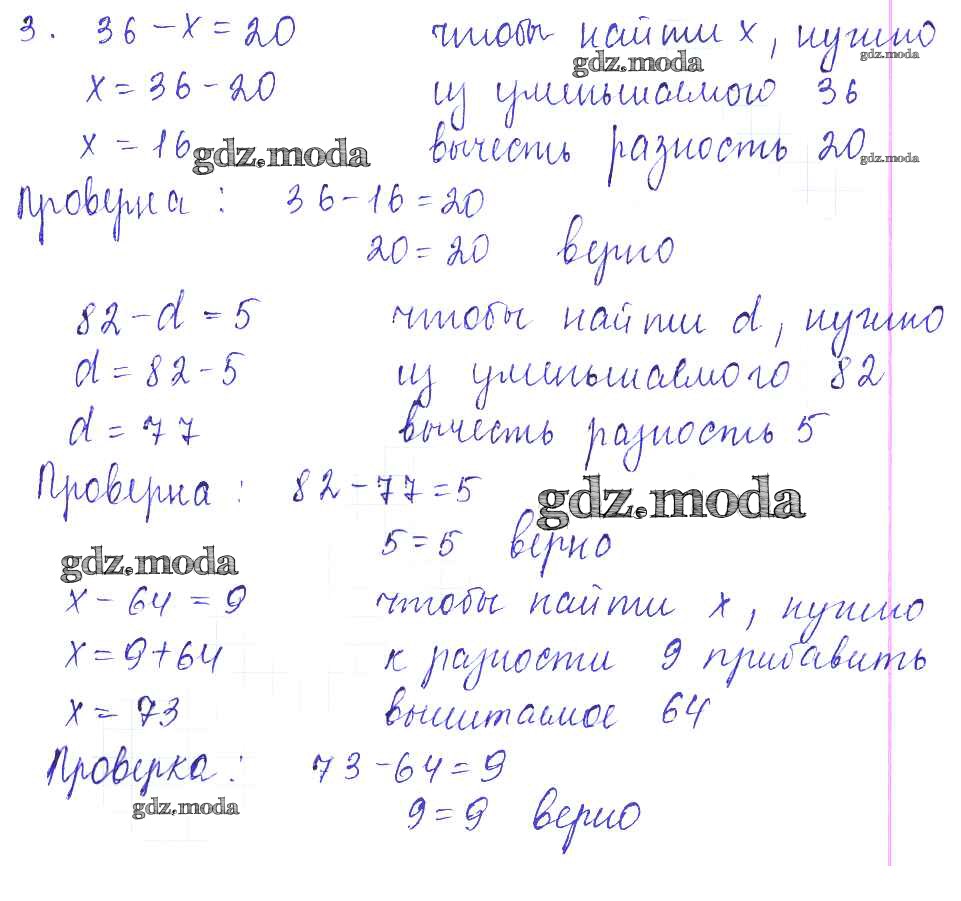 3. 36 - x = 20 чтобы найти x, нужно
gdz.moda gdz.moda
x = 36 - 20 из уменьшаемого 36
x = 16 вычесть разность 20
gdz.moda gdz.moda
Проверка: 36 - 16 = 20
20 = 20 верно
82 - d = 5 чтобы найти d, нужно
d = 82 - 5 из уменьшаемого 82
d = 77 вычесть разность 5
Проверка: 82 - 77 = 5
gdz.moda
5 = 5 верно
gdz.moda
x - 64 = 9 чтобы найти x, нужно
x = 9 + 64 к разности 9 прибавить
x = 73 вычитаемое 64
Проверка: 73 - 64 = 9
gdz.moda
9 = 9 верно